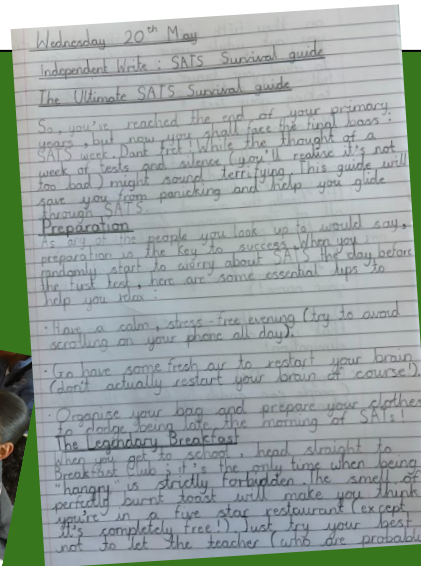 Wednesday 20th May
Independent Write : SATS Survival guide
The Ultimate SATS Survival guide
So, you've reached the end of your primary
years, but now you shall face the final boss :
SATS week. Dont fret! While the thought of a
week of tests and silence (you'll realise it's not
too bad) might sound terrifying, this guide will
save you from panicking and help you glide
through SATS.
Preparation
As any of the people you look up to would say,
preparation is the key to success. When you
randomly start to worry about SATS the day before
the first test, here are some essential tips to
help you relax :
· Have a calm, stress-free evening (try to avoid
scrolling on your phone all day).
· Go have some fresh air to restart your brain
(don't actually restart your brain of course!).
· Organise your bag and prepare your clothes
to dodge being late the morning of SATs!
The Legendary Breakfast
When you get to school, head straight to
Breakfast Club ; it's the only time when being
"hangry" is strictly forbydden. The smell of
perfectly burnt toast will make you think
you're in a five star restaurant (except,
it's completely free!). Just try your best
not to let the teacher (who are probabl